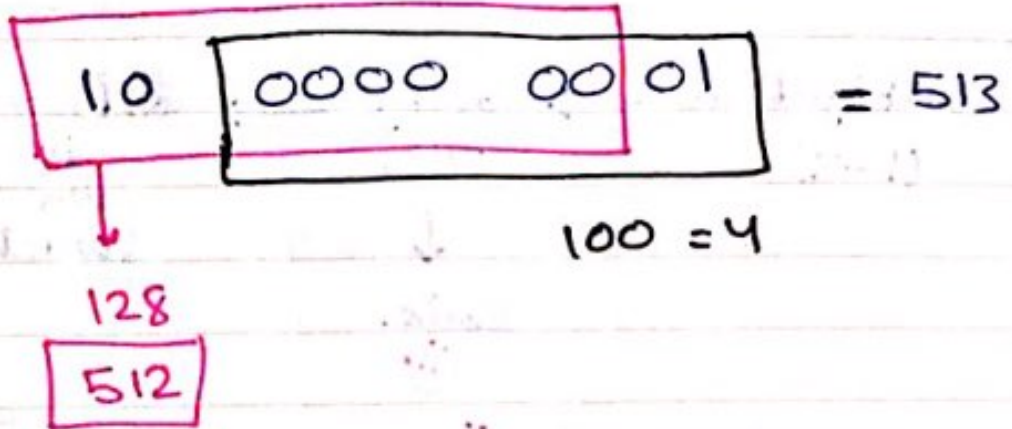 10 0000 00 01 = 513
100 = 4
128
512